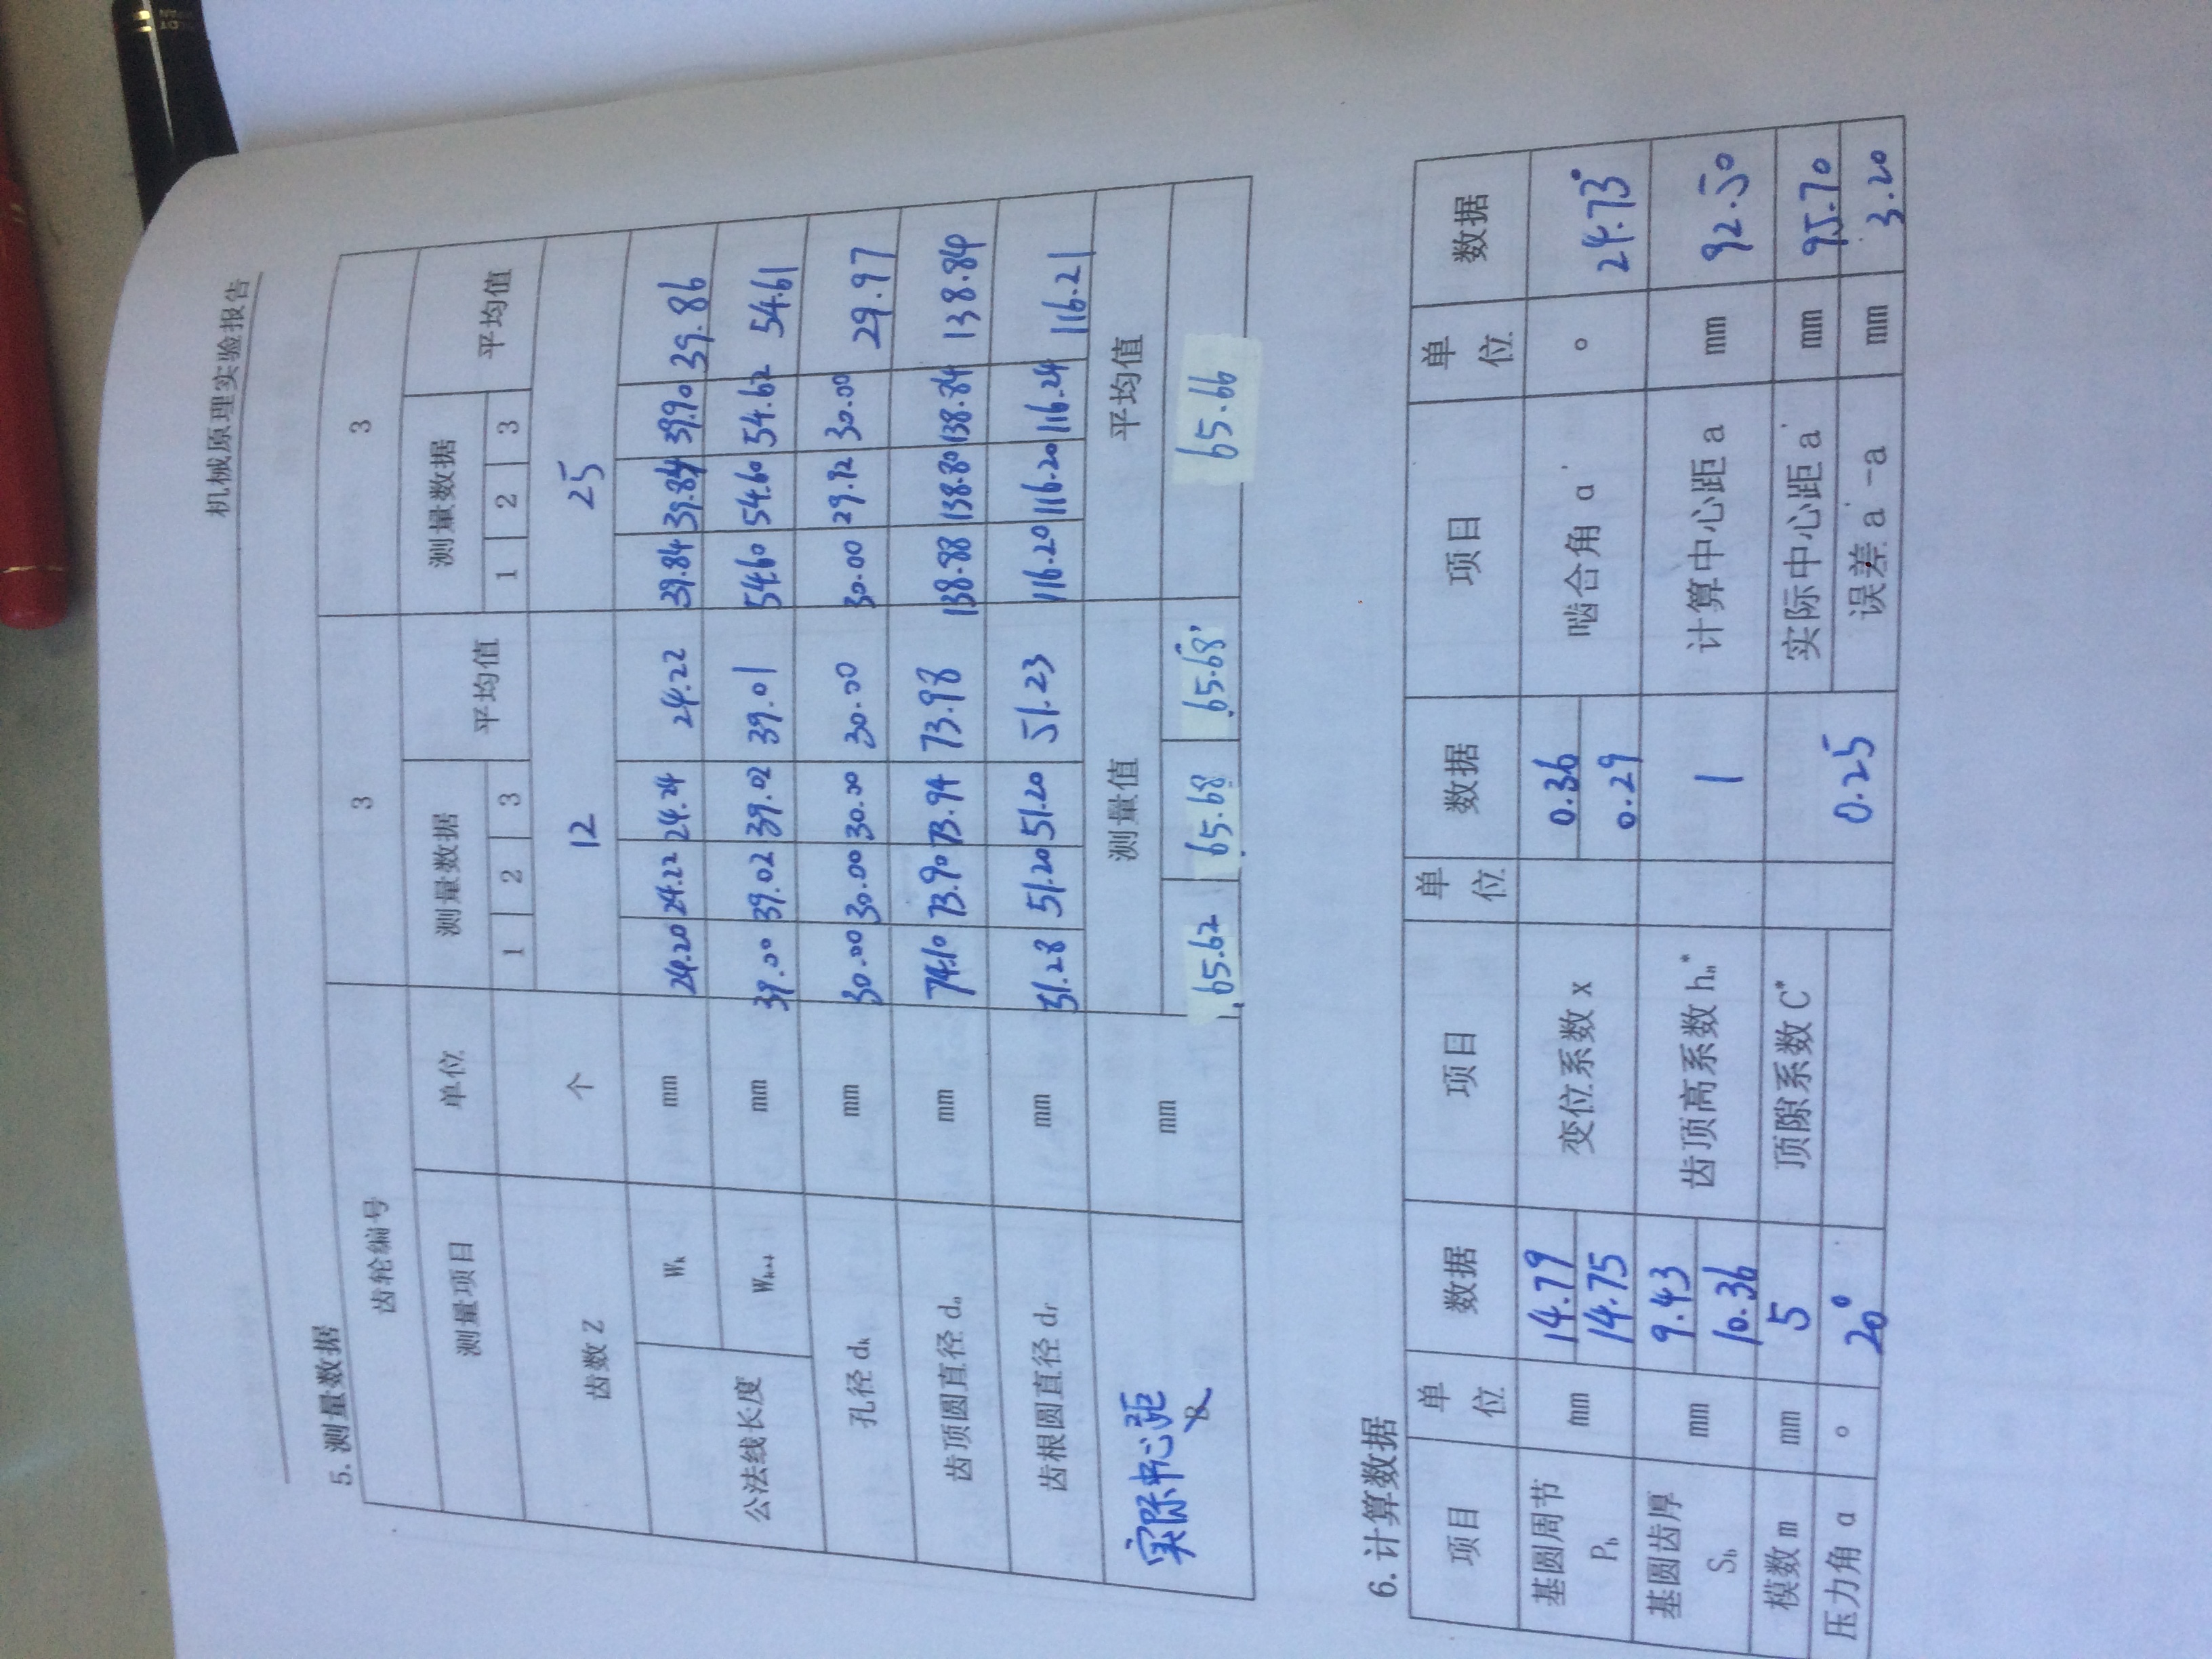 机械原理实验报告
5. 测量数据
齿轮编号 3 3
测量项目 单位 测量数据 平均值 测量数据 平均值
1 2 3 1 2 3
齿数 Z 个 12 25
公法线长度 Wk mm 24.20 24.22 24.24 24.22 39.84 39.84 39.90 39.86
Wk+1 mm 39.00 39.02 39.02 39.01 54.60 54.60 54.62 54.61
孔径 dk mm 30.00 30.00 30.00 30.00 30.00 29.92 30.00 29.97
齿顶圆直径 da mm 74.10 73.90 73.94 73.98 138.88 138.80 138.84 138.84
齿根圆直径 df mm 51.28 51.20 51.20 51.23 116.20 116.20 116.24 116.21
实际中心距 B mm 测量值 平均值
65.62 65.68 65.68 65.66
6. 计算数据
项目 单位 数据 项目 单位 数据 项目 单位 数据
基圆周节 Pb mm 14.79 14.75 变位系数 x 0.36 0.29 啮合角 α' ° 24.73°
基圆齿厚 Sb mm 9.43 10.36 齿顶高系数 ha* 1 计算中心距 a mm 92.50
模数 m mm 5 顶隙系数 C* 0.25 实际中心距 a' mm 95.70
压力角 α ° 20° 误差 a'-a mm 3.20